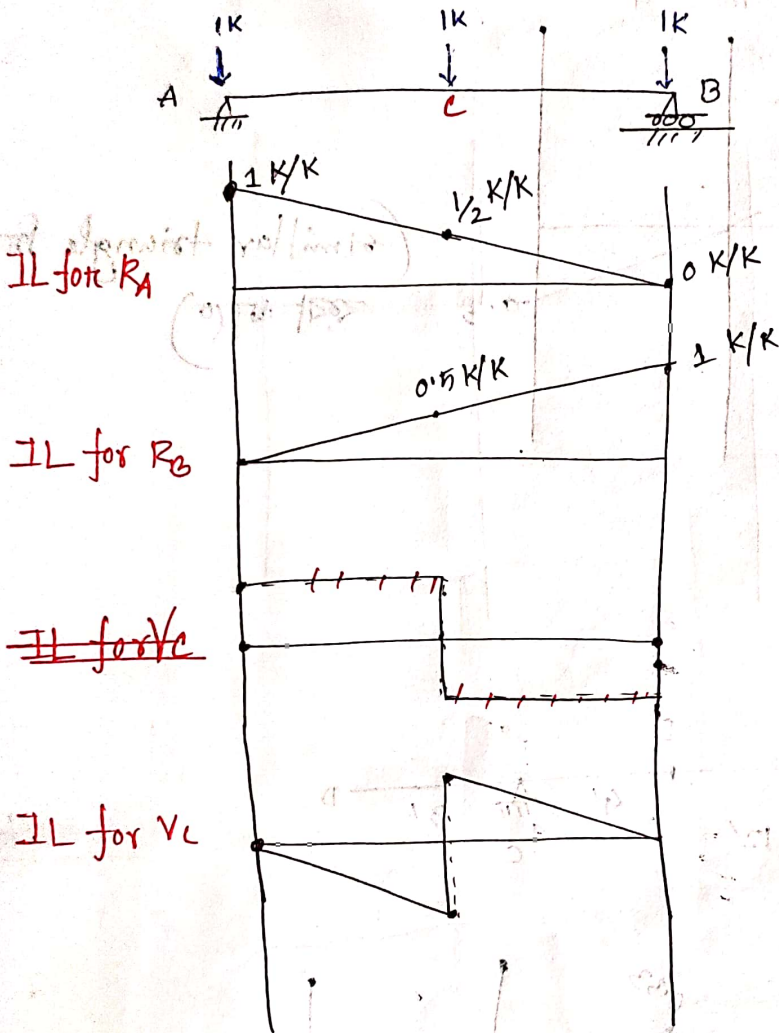 1K 1K 1K
A C B
1 K/K
1/2 K/K
IL for RA
0 K/K
0.5 K/K
1 K/K
IL for RB
IL for VC
IL for VC